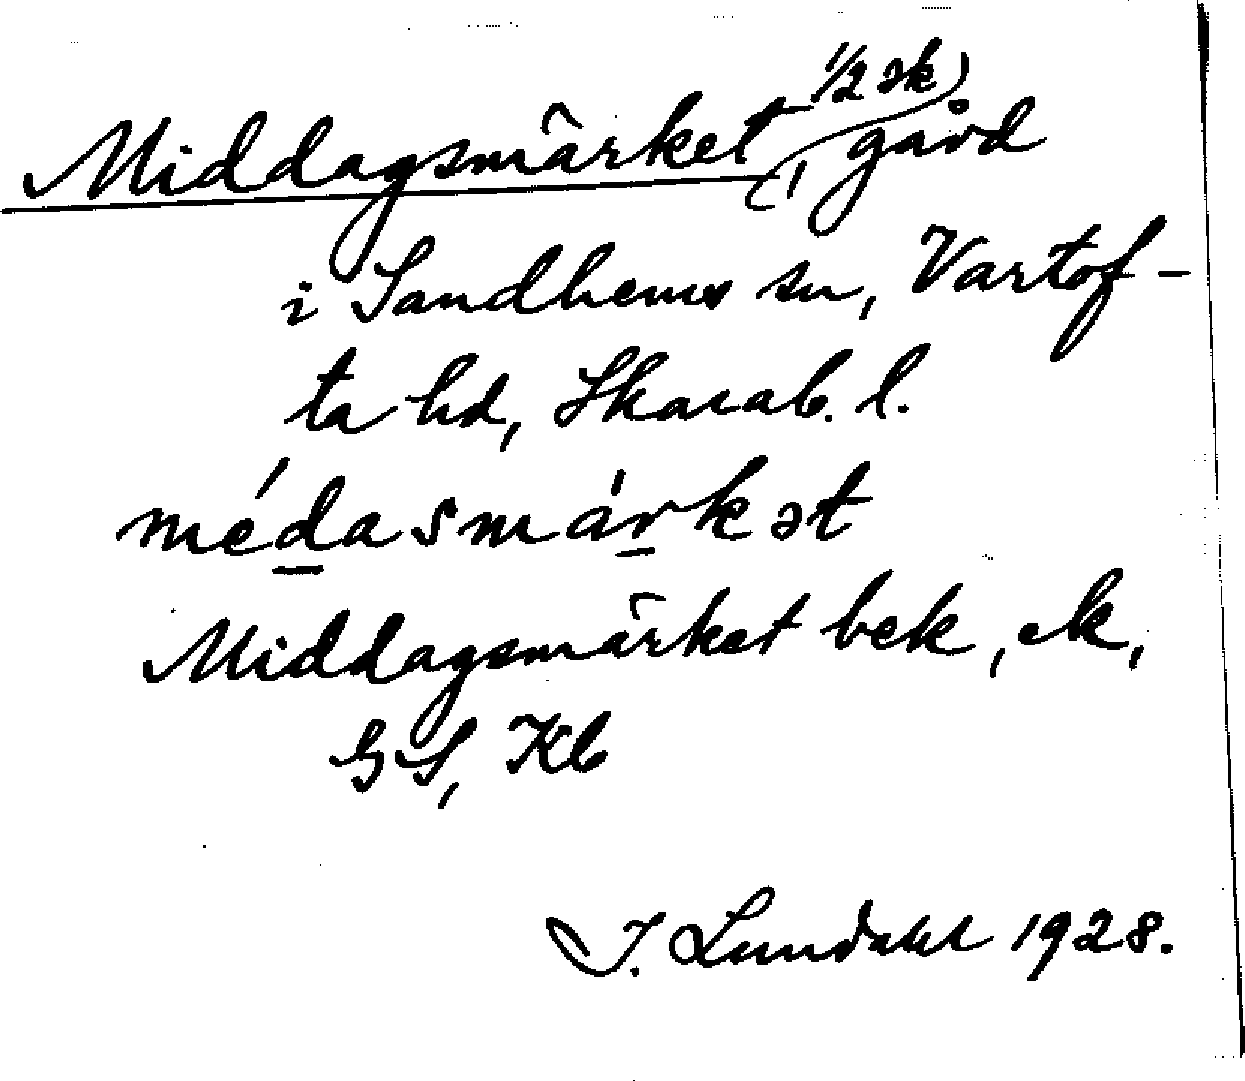 Middagsmärket, 1/2 sk, gård
i Sandhems sn, Vartof-
ta hd, Skarab. l.
médasmárkət
Middagsmärket bek, ek,
GS, Kb
I. Lundahl 1928.